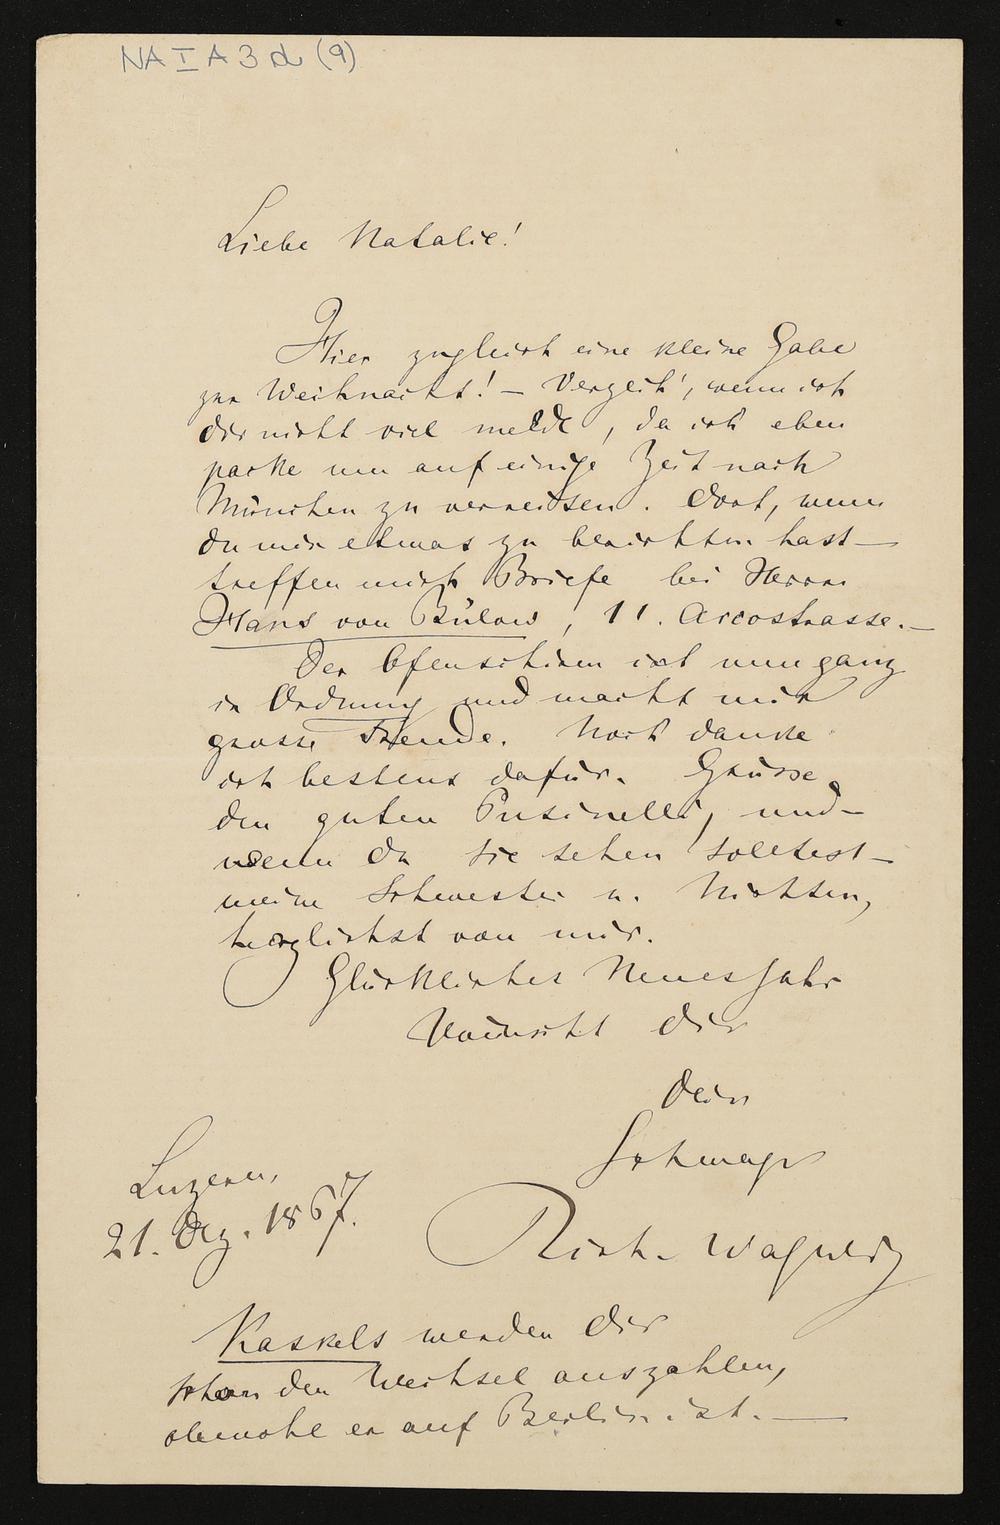 NA I A 3 d (9)
Liebe Natalie!
Hier zugleich eine kleine Gabe
zur Weihnacht! – Verzeih', wenn ich
dir nicht viel melde, da ich eben
packe um auf einige Zeit nach
München zu verreisen. Dort, wenn
du mir etwas zu berichten hast –
treffen mich Briefe bei Herrn
Hans von Bülow, 11. Arcostrasse. –
Der Ofenschirm ist nun ganz
in Ordnung und macht mir
grosse Freude. Noch danke
ich bestens dafür. Grüsse
den guten Pusinelli, und –
wenn du sie sehen solltest –
meine Schwester u. Nichten,
herzlichst von mir.
Glückliches Neues Jahr
wünscht dir
dein
Schwager
Rich. Wagner
Luzern,
21. Dez. 1867.
Kaskels werden dir
schon den Wechsel auszahlen,
obwohl er auf Berlin ist. –